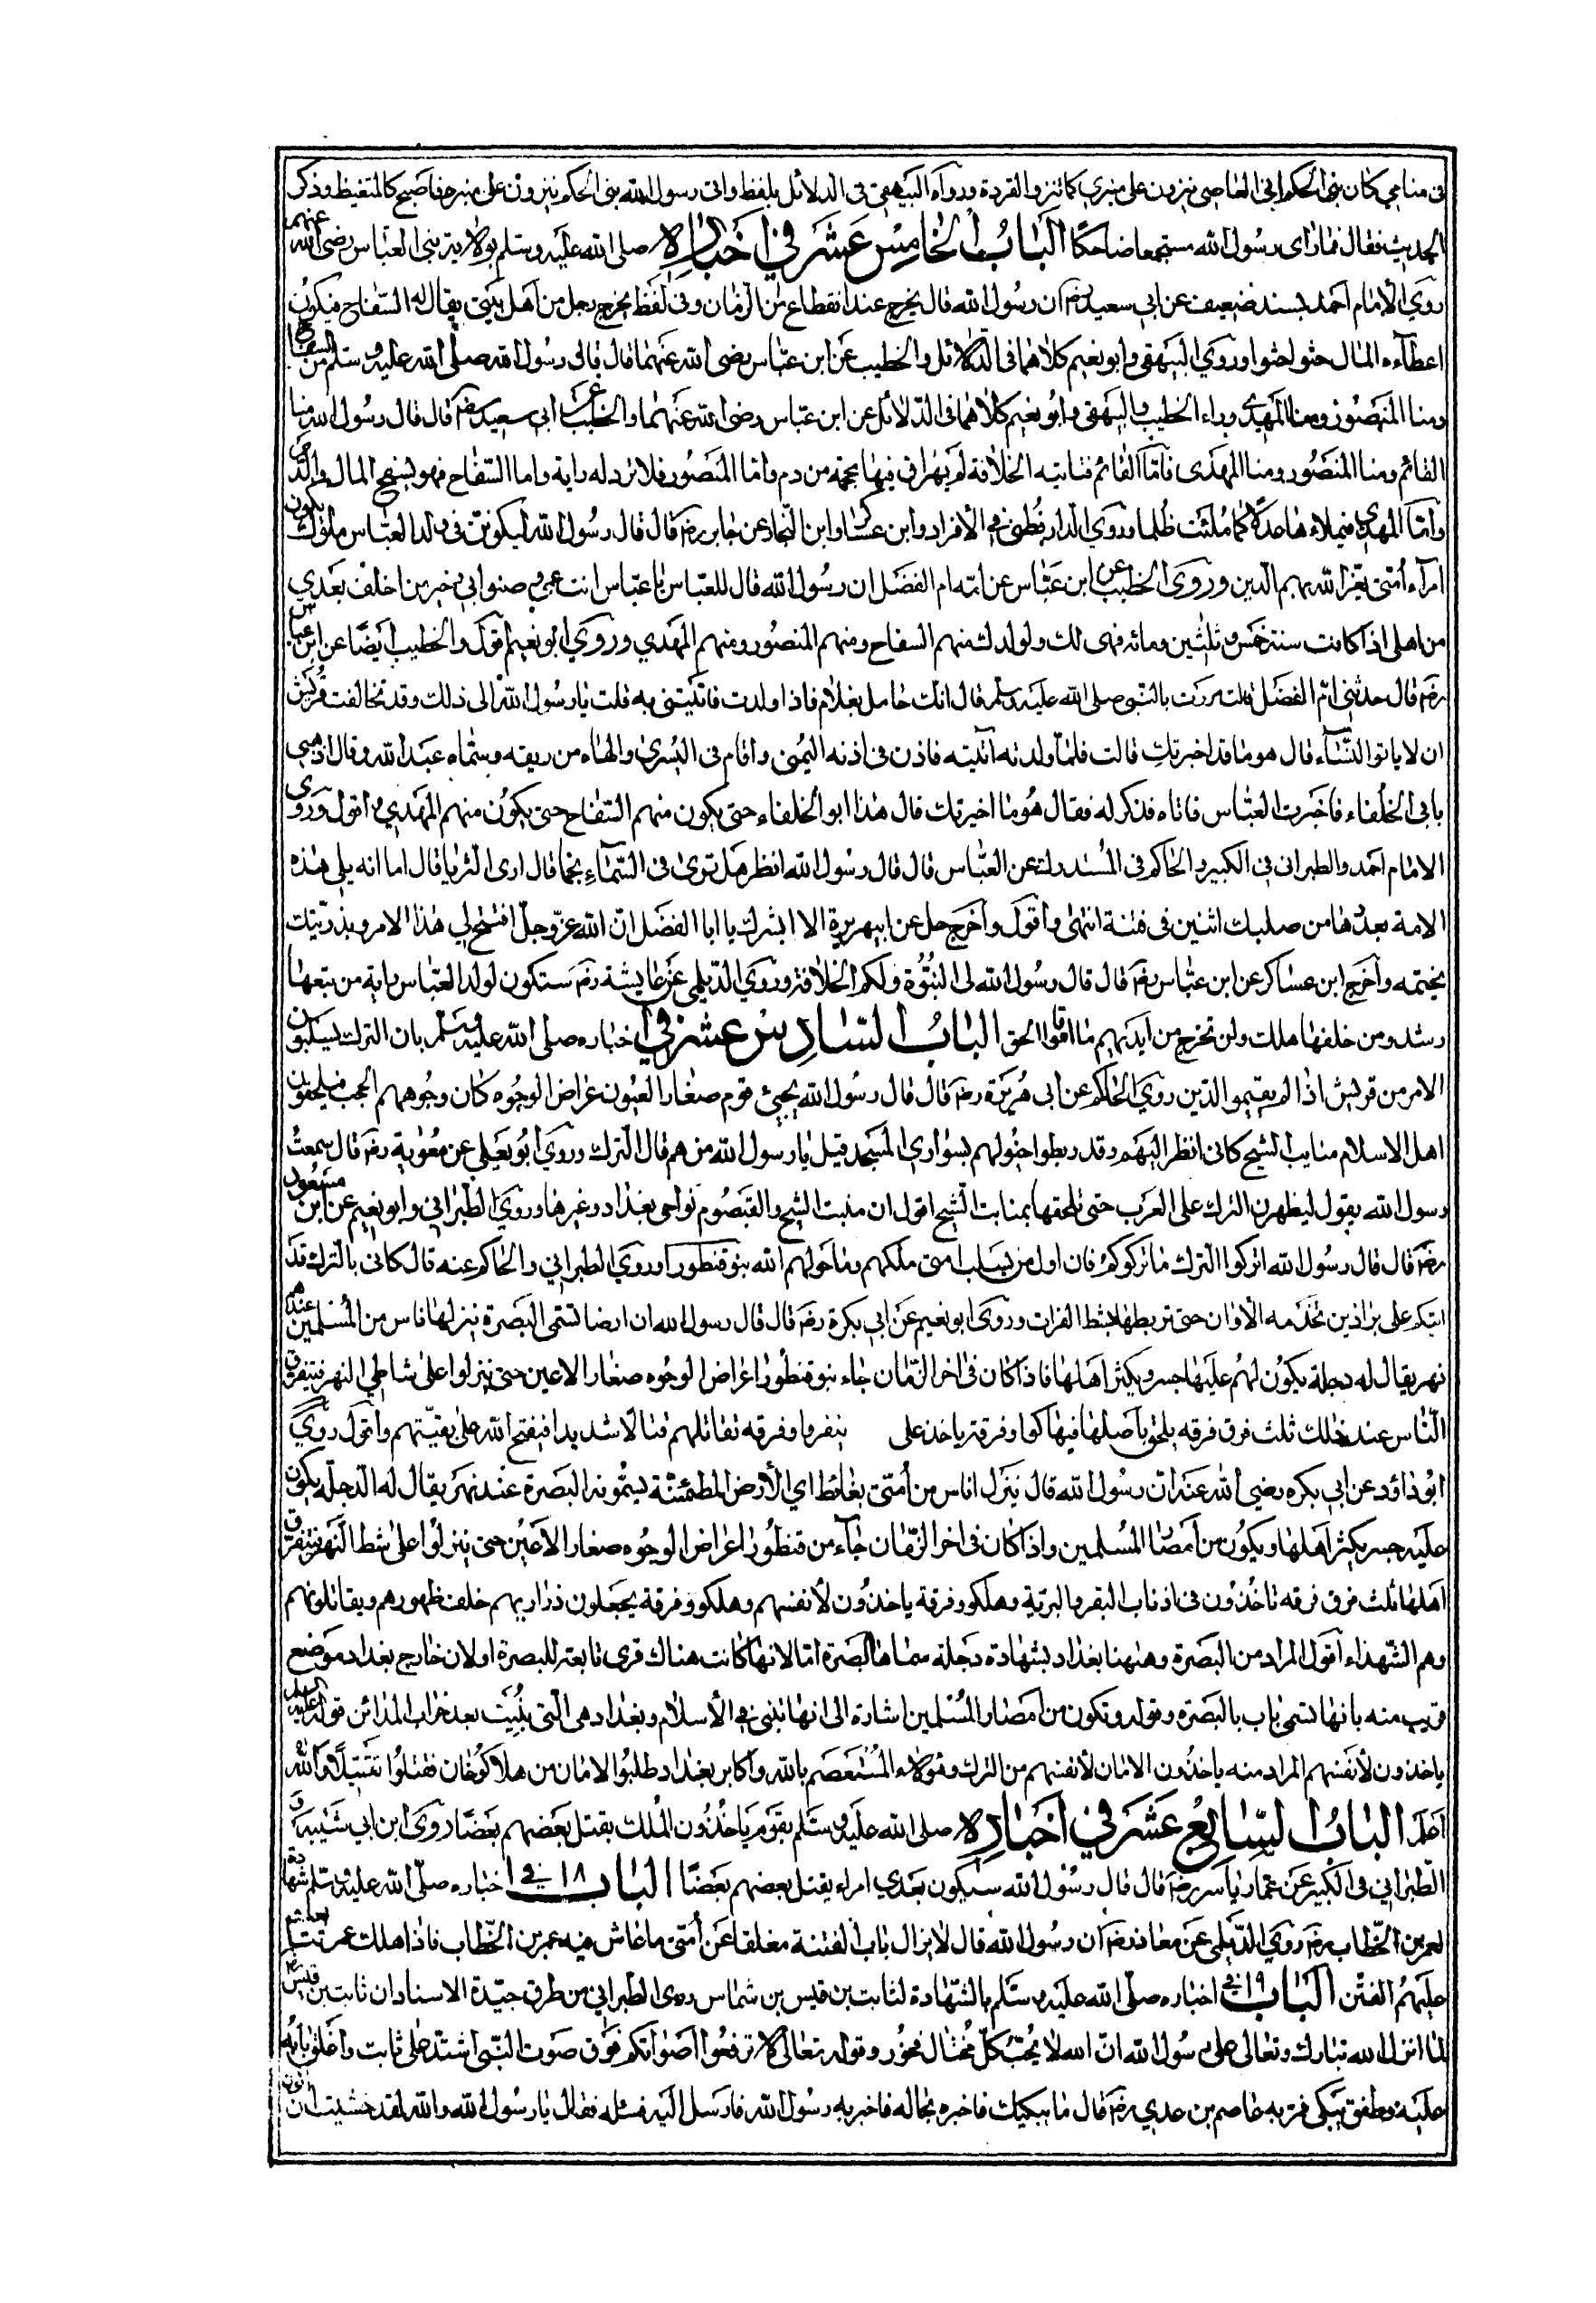 فى منامي كان بنى الحكم ابى العاصى ينزون على منبري كما تنزو القردة ورواه البيهقى فى الدلائل بلفظ واتى رسول الله بنى الحكم ينزون على منبره فاصبح كالمتغيظ وذكر
الحديث فقال فما راى رسول الله مستجمعا ضاحكا الباب الخامس عشر فى اخباره صلى الله عليه وسلم بولاية بنى العباس رضى الله عنهم
روى الامام احمد بسند ضعيف عن ابى سعيد رضه ان رسول الله قال يخرج عند انقطاع من الزمان وفى لفظ يخرج رجل من اهل بيتى يقال له السفاح فيكون
اعطاءه المال حثوا حثوا وروى البيهقى وابو نعيم كلاهما فى الدلائل والخطيب عن ابن عباس رضى الله عنهما قال قال لى رسول الله صلى الله عليه وسلم من السفاح
ومنا المنصور ومنا المهدى وراء الخطيب والبيهقى وابو نعيم كلاهما فى الدلائل عن ابن عباس رضى الله عنهما والخطيب عن ابى سعيد رضه قال قال رسول الله منا
القائم ومنا المنصور ومنا المهدى فاما القائم فتاتيه الخلافة لم يهراق فيها محجمة من دم واما المنصور فلا ترد له راية واما السفاح فهو يسفح المال والدم
واما المهدى فيملاءها عدلا كما ملئت ظلما وروى الدارقطنى فى الافراد وابن عساكر وابن النجار عن جابر رضه قال قال رسول الله ليكونن فى ولد العباس ملوك يكون
امرآء امتى يعز الله بهم الدين وروى الخطيب عن ابن عباس عن امه ام الفضل ان رسول الله قال للعباس يا عباس انت عمى وصنو ابى وخير من اخلف بعدي
من اهلى اذا كانت سنة خمس وثلثين ومائه فهى لك ولولدك منهم السفاح ومنهم المنصور ومنهم المهدي وروى ابو نعيم اقول والخطيب ايضا عن ابن عباس
رضه قال حدثنى ام الفضل قالت مررت بالنبى صلى الله عليه وسلم قال انك حامل بغلام فاذا ولدت فاتيتنى به قلت يا رسول الله انى لى ذلك وقد تحالفت قريش
ان لا ياتوا النساء قال هو ما قد اخبرتك قالت فلما ولدته اتيته فاذن فى اذنه اليمنى واقام فى اليسرى والهاه من ريقه وسماه عبد الله وقال اذهبى
بابى الخلفاء فاخبرت العباس فاتاه فذكر له فقال هو ما اخبرتك قال هذا ابو الخلفاء حتى يكون منهم السفاح حتى يكون منهم المهدي اقول وروى
الامام احمد والطبرانى فى الكبير والحاكم فى المستدرك عن العباس قال قال رسول الله انظر هل ترى فى السماء نجما قال ارى الثريا قال اما انه يلى هذه
الامة بعددها من صلبك اثنين فى فتنة انتهى واقول واخرج حل عن ابيهريرة الا ابشرك يا ابا الفضل ان الله عز وجل افتتح لي هذا الامر وبذريتك
يختمه واخرج ابن عساكر عن ابن عباس رضه قال قال رسول الله لى النبوة ولكم الخلافة وروى الديلمى عن عايشة رضه ستكون لولد العباس راية من تبعها
رشد ومن خلفها هلك ولن تخرج من ايديهم ما اقاموا الحق الباب السادس عشر فى اخباره صلى الله عليه وسلم بان الترك يسلبون
الامر من قريش اذا لم يقيموا الدين روى الحاكم عن ابى هريرة رضه قال قال رسول الله يجيئ قوم صغار العيون عراض الوجوه كان وجوههم الحجب فيلحقون
اهل الاسلام منابت الشيح كانى انظر اليهم وقد ربطوا خيولهم بسواري المسجد قيل يا رسول الله من هم قال الترك وروى ابو يعيلى عن معوية رضه قال سمعت
رسول الله يقول ليظهرن الترك على العرب حتى تلحقها بمنابت الشيح اقول ان منبت الشيح والقيصوم نواحى بغداد وغيرها وروى الطبرانى وابو نعيم عن ابن مسعود
رضه قال قال رسول الله اتركوا الترك ما تركوكم فان اول من يسلب امتى ملكهم وما خولهم الله بنو قنطورا وروى الطبرانى والحاكم عنه قال كانى بالترك قد
اتتكم على براذين مخذمه الاذان حتى تربطها بشط الفرات وروى ابو نعيم عن ابى بكرة رضه قال قال رسول الله ان ارضا تسمى البصرة ينزلها ناس من المسلمين عنده
نهر يقال له دجلة يكون لهم عليها جسر ويكثر اهلها فاذا كان فى اخر الزمان جاء بنو قنطورا عراض الوجوه صغار الاعين حتى ينزلوا على شاطئ النهر فتفرق
الناس عند ذلك ثلث فرق فرقه يلحق باصلها فيهلكوا وفرقة ياخذ على      ينفروا وفرقه تقاتلهم قتالا شديدا فيفتح الله على بقيتهم واقول روى
ابو داؤد عن ابى بكره رضى الله عنه ان رسول الله قال ينزل اناس من امتى بغائط اي الارض المطمئنة يسمونه البصرة عند نهر يقال له الدجلة يكون
عليه جسر يكثر اهلها ويكون من امصار المسلمين واذا كان فى اخر الزمان جآء من قنطورا عراض الوجوه صغار الاعين حتى ينزلوا على شط النهر فيتفرق
اهلها ثلث فرق فرقه تاخذون فى اذناب البقر والبرية وهلكو وفرقة ياخذون لانفسهم وهلكو وفرقة يجعلون ذراريهم خلف ظهورهم ويقاتلونهم
وهم الشهداء اقول المراد من البصرة وههنا بغداد بشهادة دجلة سماها البصرة اما لانها كانت هناك قرى تابعة للبصرة او لان خارج بغداد موضع
قريب منه بانها تسمى باب بالبصرة وقوله وتكون من امصار المسلمين اشارة الى انها تبنى فى الاسلام وبغداد هى التى بنيت بعد خراب المدائن قوله عليه السلام
ياخذون لانفسهم المراد منه ياخذون الامان لانفسهم من الترك وهؤلاء المستعصم بالله واكابر بغداد طلبوا الامان من هلاكوخان فقتلوا تقتيلا والله
اعلم الباب السابع عشر فى اخباره صلى الله عليه وسلم بقوم ياخذون الملك بقتل بعضهم بعضا روى ابن ابى شيبه و
الطبرانى فى الكبير عن عمار ياسر رضه قال قال رسول الله سيكون بعدي امراء يقتل بعضهم بعضا الباب ١٨ فى اخباره صلى الله عليه وسلم شهادة
لعمر بن الخطاب رضه روى الديلمى عن معاذ رضه ان رسول الله قال لا يزال باب الفتنة مغلقا عن امتى ما عاش فيه عمر بن الخطاب فاذا هلك عمر تتابعت
عليهم الفتن الباب ١٩ فى اخباره صلى الله عليه وسلم بالشهادة لثابت بن قيس بن شماس روى الطبرانى من طرق جيدة الاسناد ان ثابت بن قيس
لما انزل الله تبارك وتعالى على رسول الله ان الله لا يحب كل مختال فخور وقوله تعالى لا ترفعوا اصواتكم فوق صوت النبى اشتد على ثابت واغلق بابه
عليه وطفق يبكى فمر به عاصم بن عدي رضه قال ما يبكيك فاخبره بحاله فاخبر به رسول الله فارسل اليه فسئله فقال يا رسول الله والله لقد خشيت ان اكون